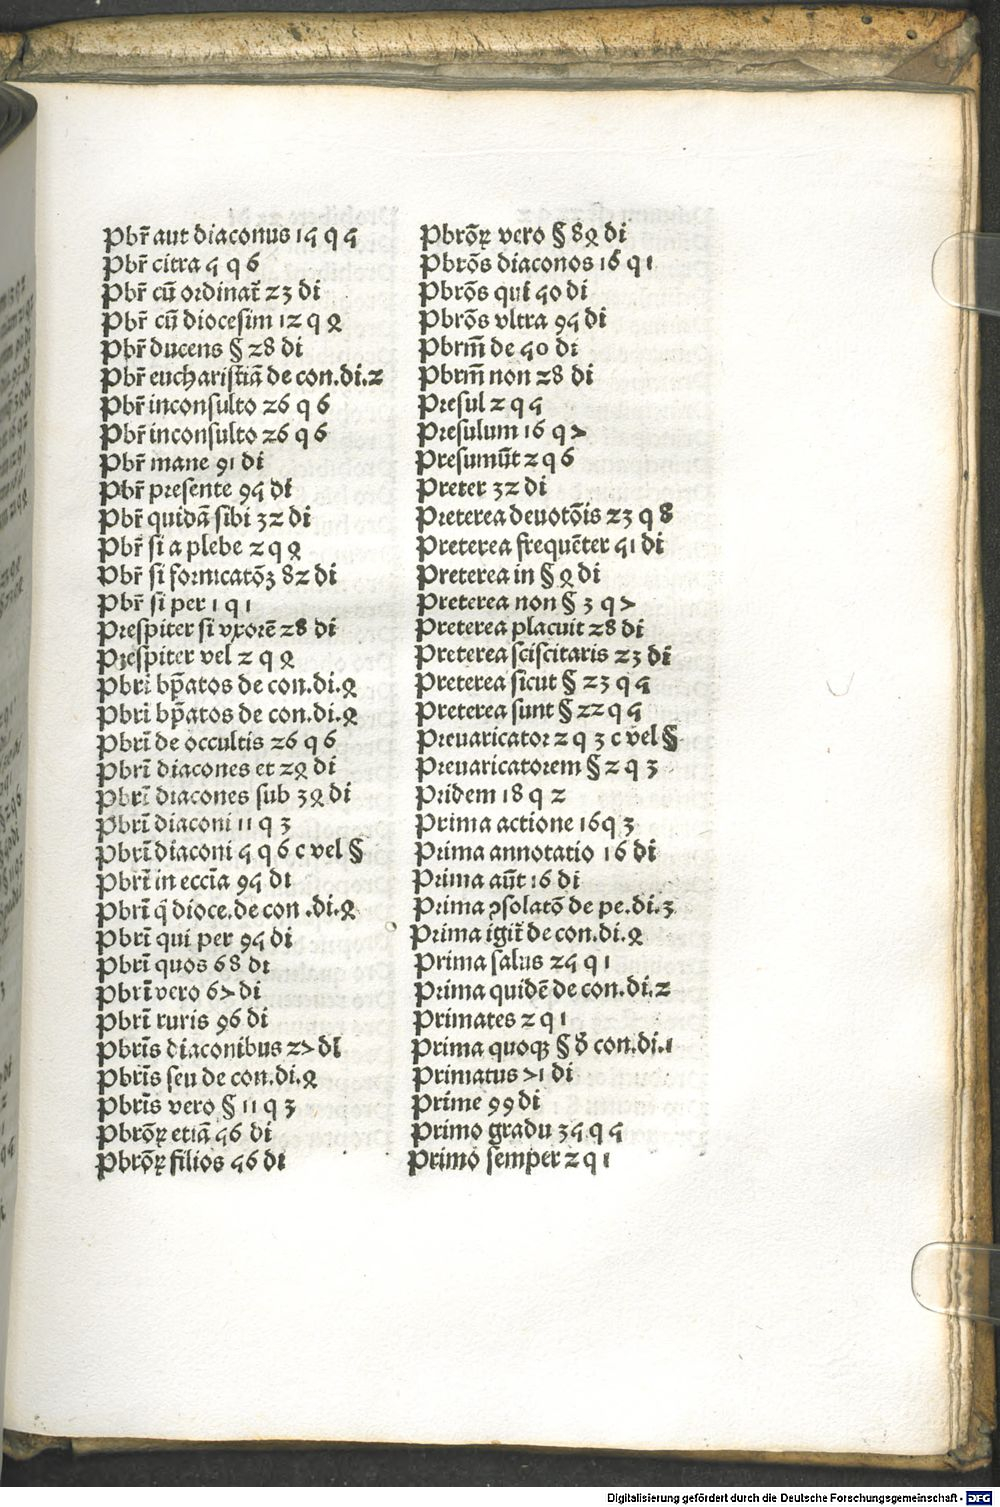 Pbr̄ aut diaconus 15 q 5
Pbr̄ citra 5 q 6
Pbr̄ cū ordinat̄ 23 di
Pbr̄ cū diocesim 12 q 2
Pbr̄ ducens § 28 di
Pbr̄ eucharistiā de con.di.2
Pbr̄ inconsulto 26 q 6
Pbr̄ inconsulto 26 q 6
Pbr̄ mane 91 di
Pbr̄ presente 95 di
Pbr̄ quidā sibi 32 di
Pbr̄ si a plebe 2 q 4
Pbr̄ si fornicatōꝫ 82 di
Pbr̄ si per 1 q 1
Prespiter si vxorē 28 di
Prespiter vel 2 q 4
Pbri bp̄atos de con.di.4
Pbri bp̄atos de con.di.4
Pbrī de occultis 26 q 6
Pbrī diacones et 24 di
Pbrī diacones sub 34 di
Pbrī diaconi 11 q 3
Pbrī diaconi 5 q 6 c vel §
Pbrī in eccīa 95 di
Pbrī q̄ dioce.de con .di.4
Pbrī qui per 95 di
Pbrī quos 68 di
Pbrī vero 67 di
Pbrī ruris 96 di
Pbrīs diaconibus 27 di
Pbrīs seu de con.di.4
Pbrīs vero § 11 q 3
Pbrōꝝ etiā 56 di
Pbrōꝝ filios 56 di
Pbrōꝝ vero § 84 di
Pbrōs diaconos 16 q 1
Pbrōs qui 50 di
Pbrōs vltra 95 di
Pbrm̄ de 50 di
Pbrm̄ non 28 di
Presul 2 q 5
Presulum 16 q 7
Presumūt 2 q 6
Preter 32 di
Preterea deuotōis 23 q 8
Preterea frequēter 51 di
Preterea in § 4 di
Preterea non § 3 q 7
Preterea placuit 28 di
Preterea sciscitaris 23 di
Preterea sicut § 23 q 5
Preterea sunt § 22 q 5
Preuaricator 2 q 3 c vel §
Preuaricatorem § 2 q 3
Pridem 18 q 2
Prima actione 16 q 3
Prima annotatio 16 di
Prima aūt 16 di
Prima ꝯsolatō de pe.di.3
Prima igit̄ de con.di.4
Prima salus 25 q 1
Prima quidē de con.di.2
Primates 2 q 1
Prima quoqꝫ § d̄ con.di.1
Primatus 71 di
Prime 99 di
Primo gradu 35 q 5
Primo semper 2 q 1
Digitalisierung gefördert durch die Deutsche Forschungsgemeinschaft - DFG